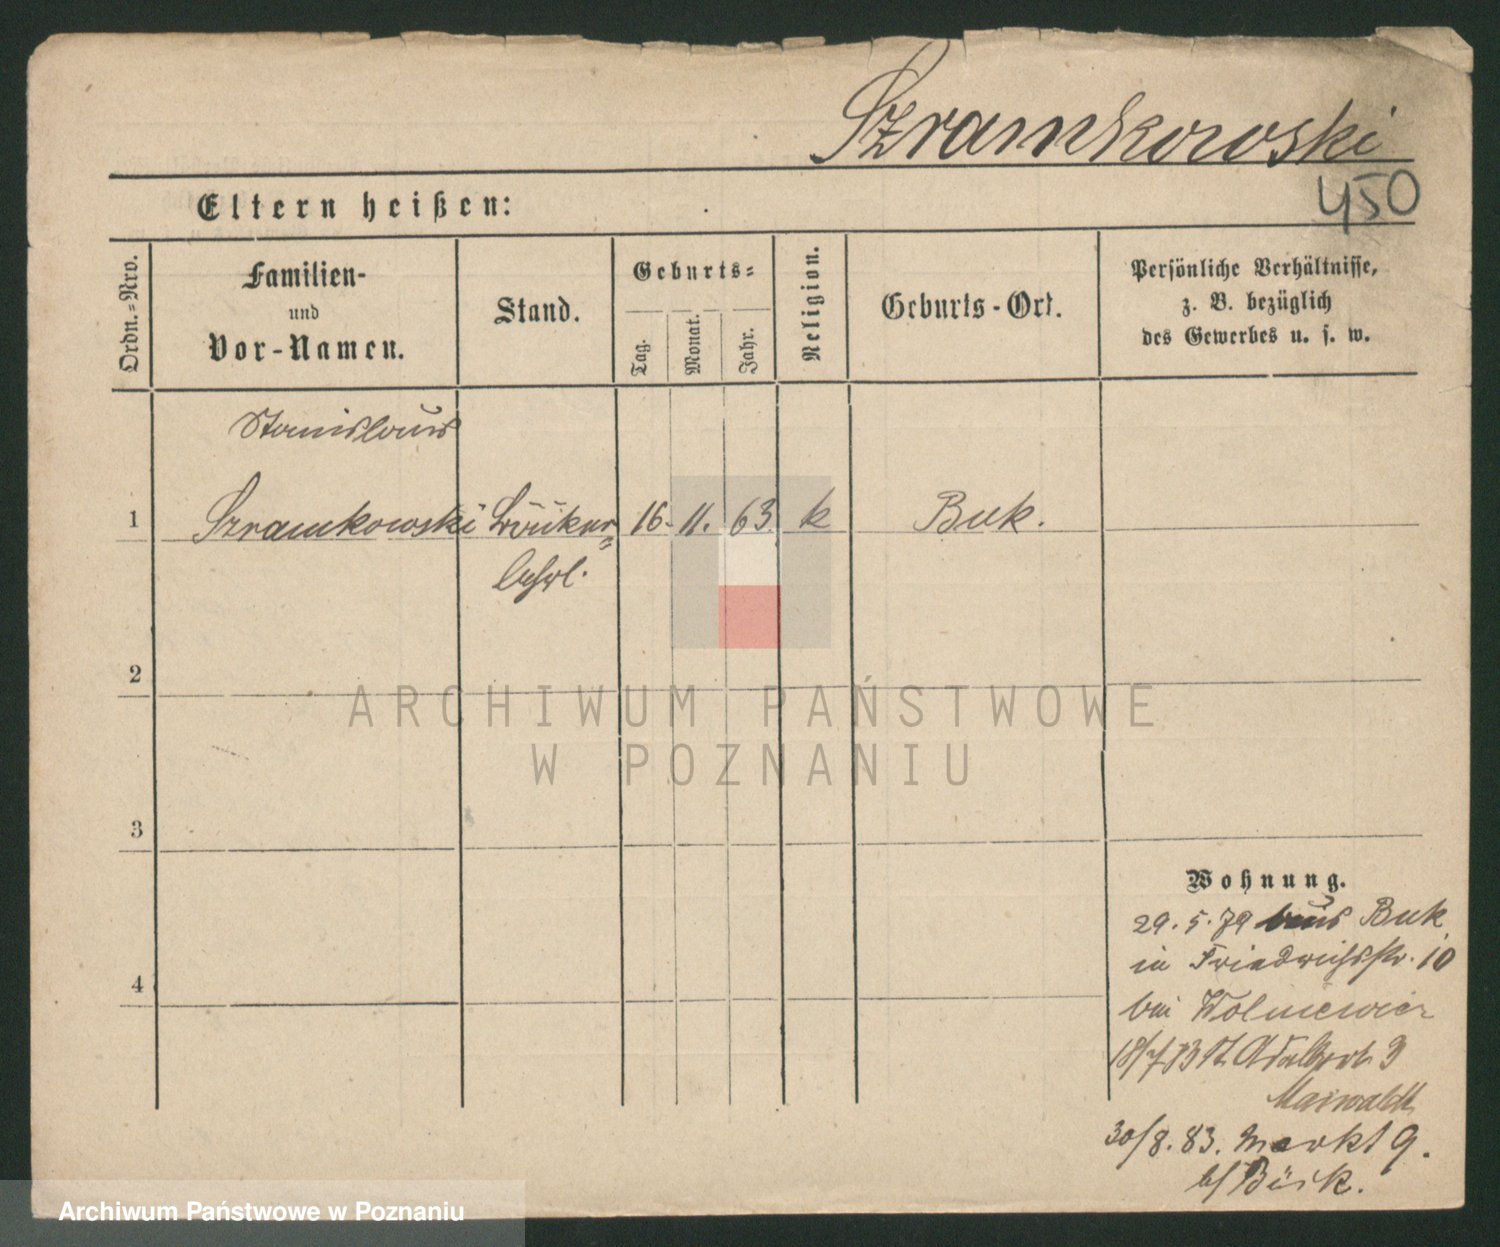 Szramkowski
450
Eltern heißen:
Ordn.=Nro.
Familien-
und
Vor-Namen.
Stand.
Geburts=
Tag.
Monat.
Jahr.
Religion.
Geburts-Ort.
Persönliche Verhältnisse,
z. B. bezüglich
des Gewerbes u. s. w.
Stanislaus
1 Szramkowski 16. 11. 63. k Buk.
2
3
4
Wohnung.
29. 5. 79 aus Buk
in Friedrichsstr. 10
bei Wolniewicz
18/7 83 St. Adalbert 3
Maiwaldt
30/8. 83. Markt 9.
b/
ARCHIWUM PAŃSTWOWE
W POZNANIU
Archiwum Państwowe w Poznaniu